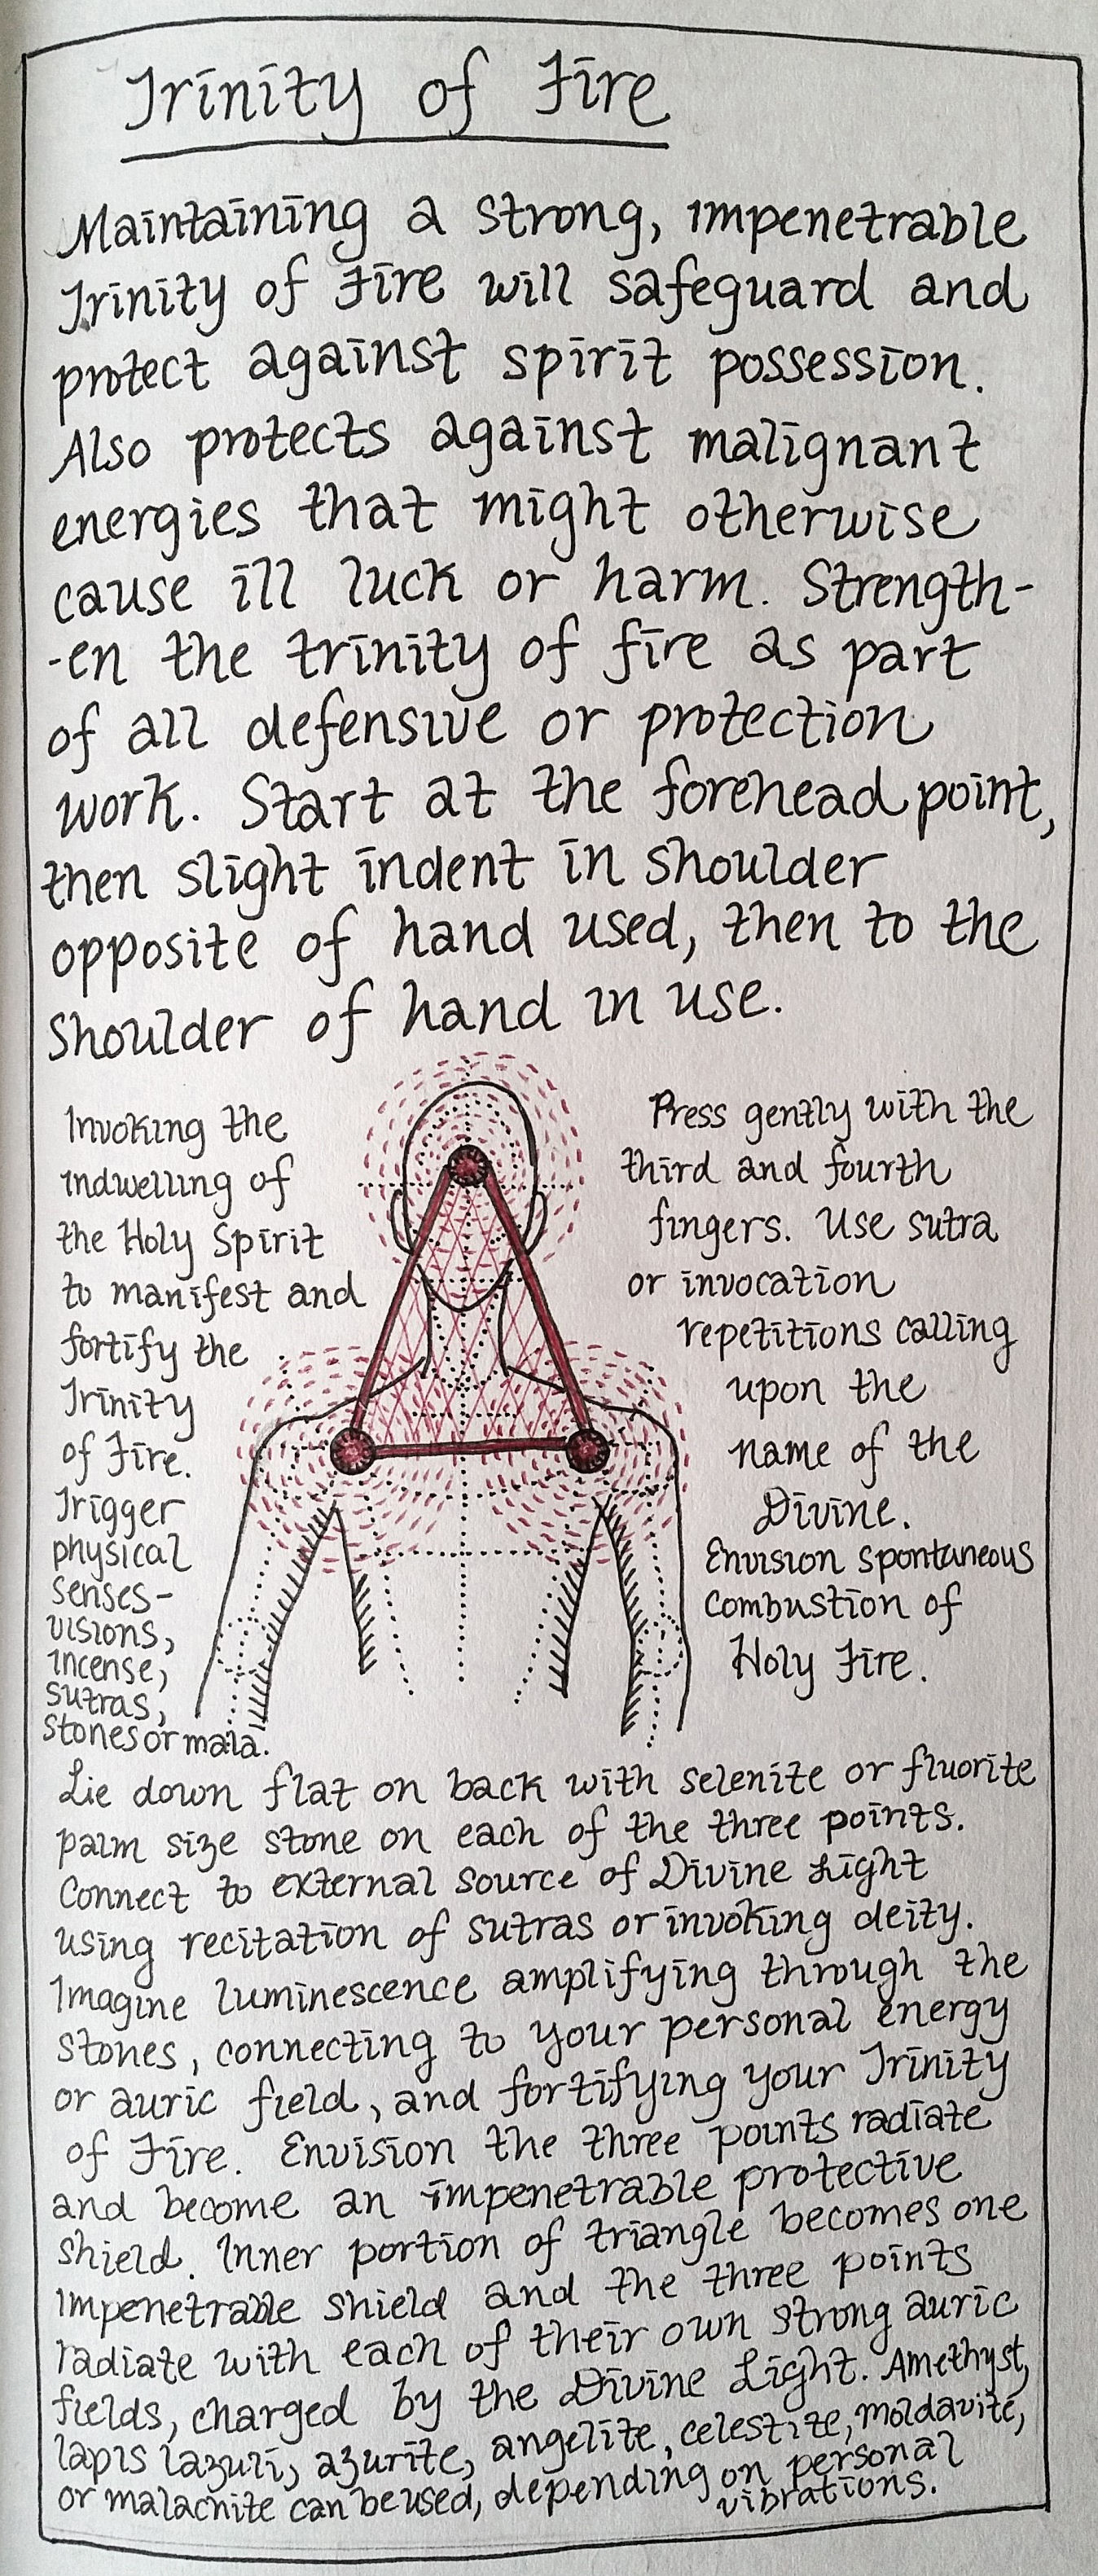 Trinity of Fire
Maintaining a strong, impenetrable
Trinity of Fire will safeguard and
protect against spirit possession.
Also protects against malignant
energies that might otherwise
cause ill luck or harm. Strength-
-en the trinity of fire as part
of all defensive or protection
work. Start at the forehead point,
then slight indent in shoulder
opposite of hand used, then to the
shoulder of hand in use.
Invoking the
indwelling of
the Holy Spirit
to manifest and
fortify the
Trinity
of Fire.
Trigger
physical
senses-
visions,
incense,
sutras,
stones or mala.
Press gently with the
third and fourth
fingers. Use sutra
or invocation
repetitions calling
upon the
name of the
Divine.
Envision spontaneous
combustion of
Holy Fire.
Lie down flat on back with selenite or fluorite
palm size stone on each of the three points.
Connect to external source of Divine Light
using recitation of sutras or invoking deity.
Imagine luminescence amplifying through the
stones, connecting to your personal energy
or auric field, and fortifying your Trinity
of Fire. Envision the three points radiate
and become an impenetrable protective
shield. Inner portion of triangle becomes one
impenetrable shield and the three points
radiate with each of their own strong auric
fields, charged by the Divine Light. Amethyst,
lapis lazuli, azurite, angelite, celestite, moldavite,
or malachite can be used, depending on personal
vibrations.